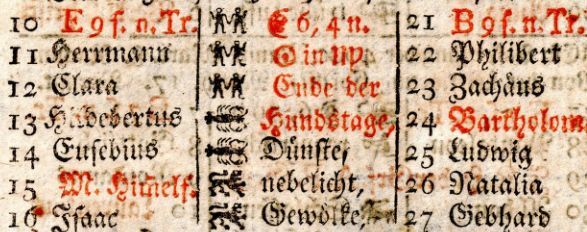 10 E 9 f. n. Tr. E 6, 4 n. 21 B 9 f. n. Tr.
11 Herrmann ☉ in ♍ 22 Philibert
12 Clara Ende der 23 Zachäus
13 Hildebertus Hundstage, 24 Bartholom.
14 Eusebius Dünste, 25 Ludwig
15 M. Himelf. nebelicht, 26 Natalia
16 Isaac Gewölke, 27 Gebhard